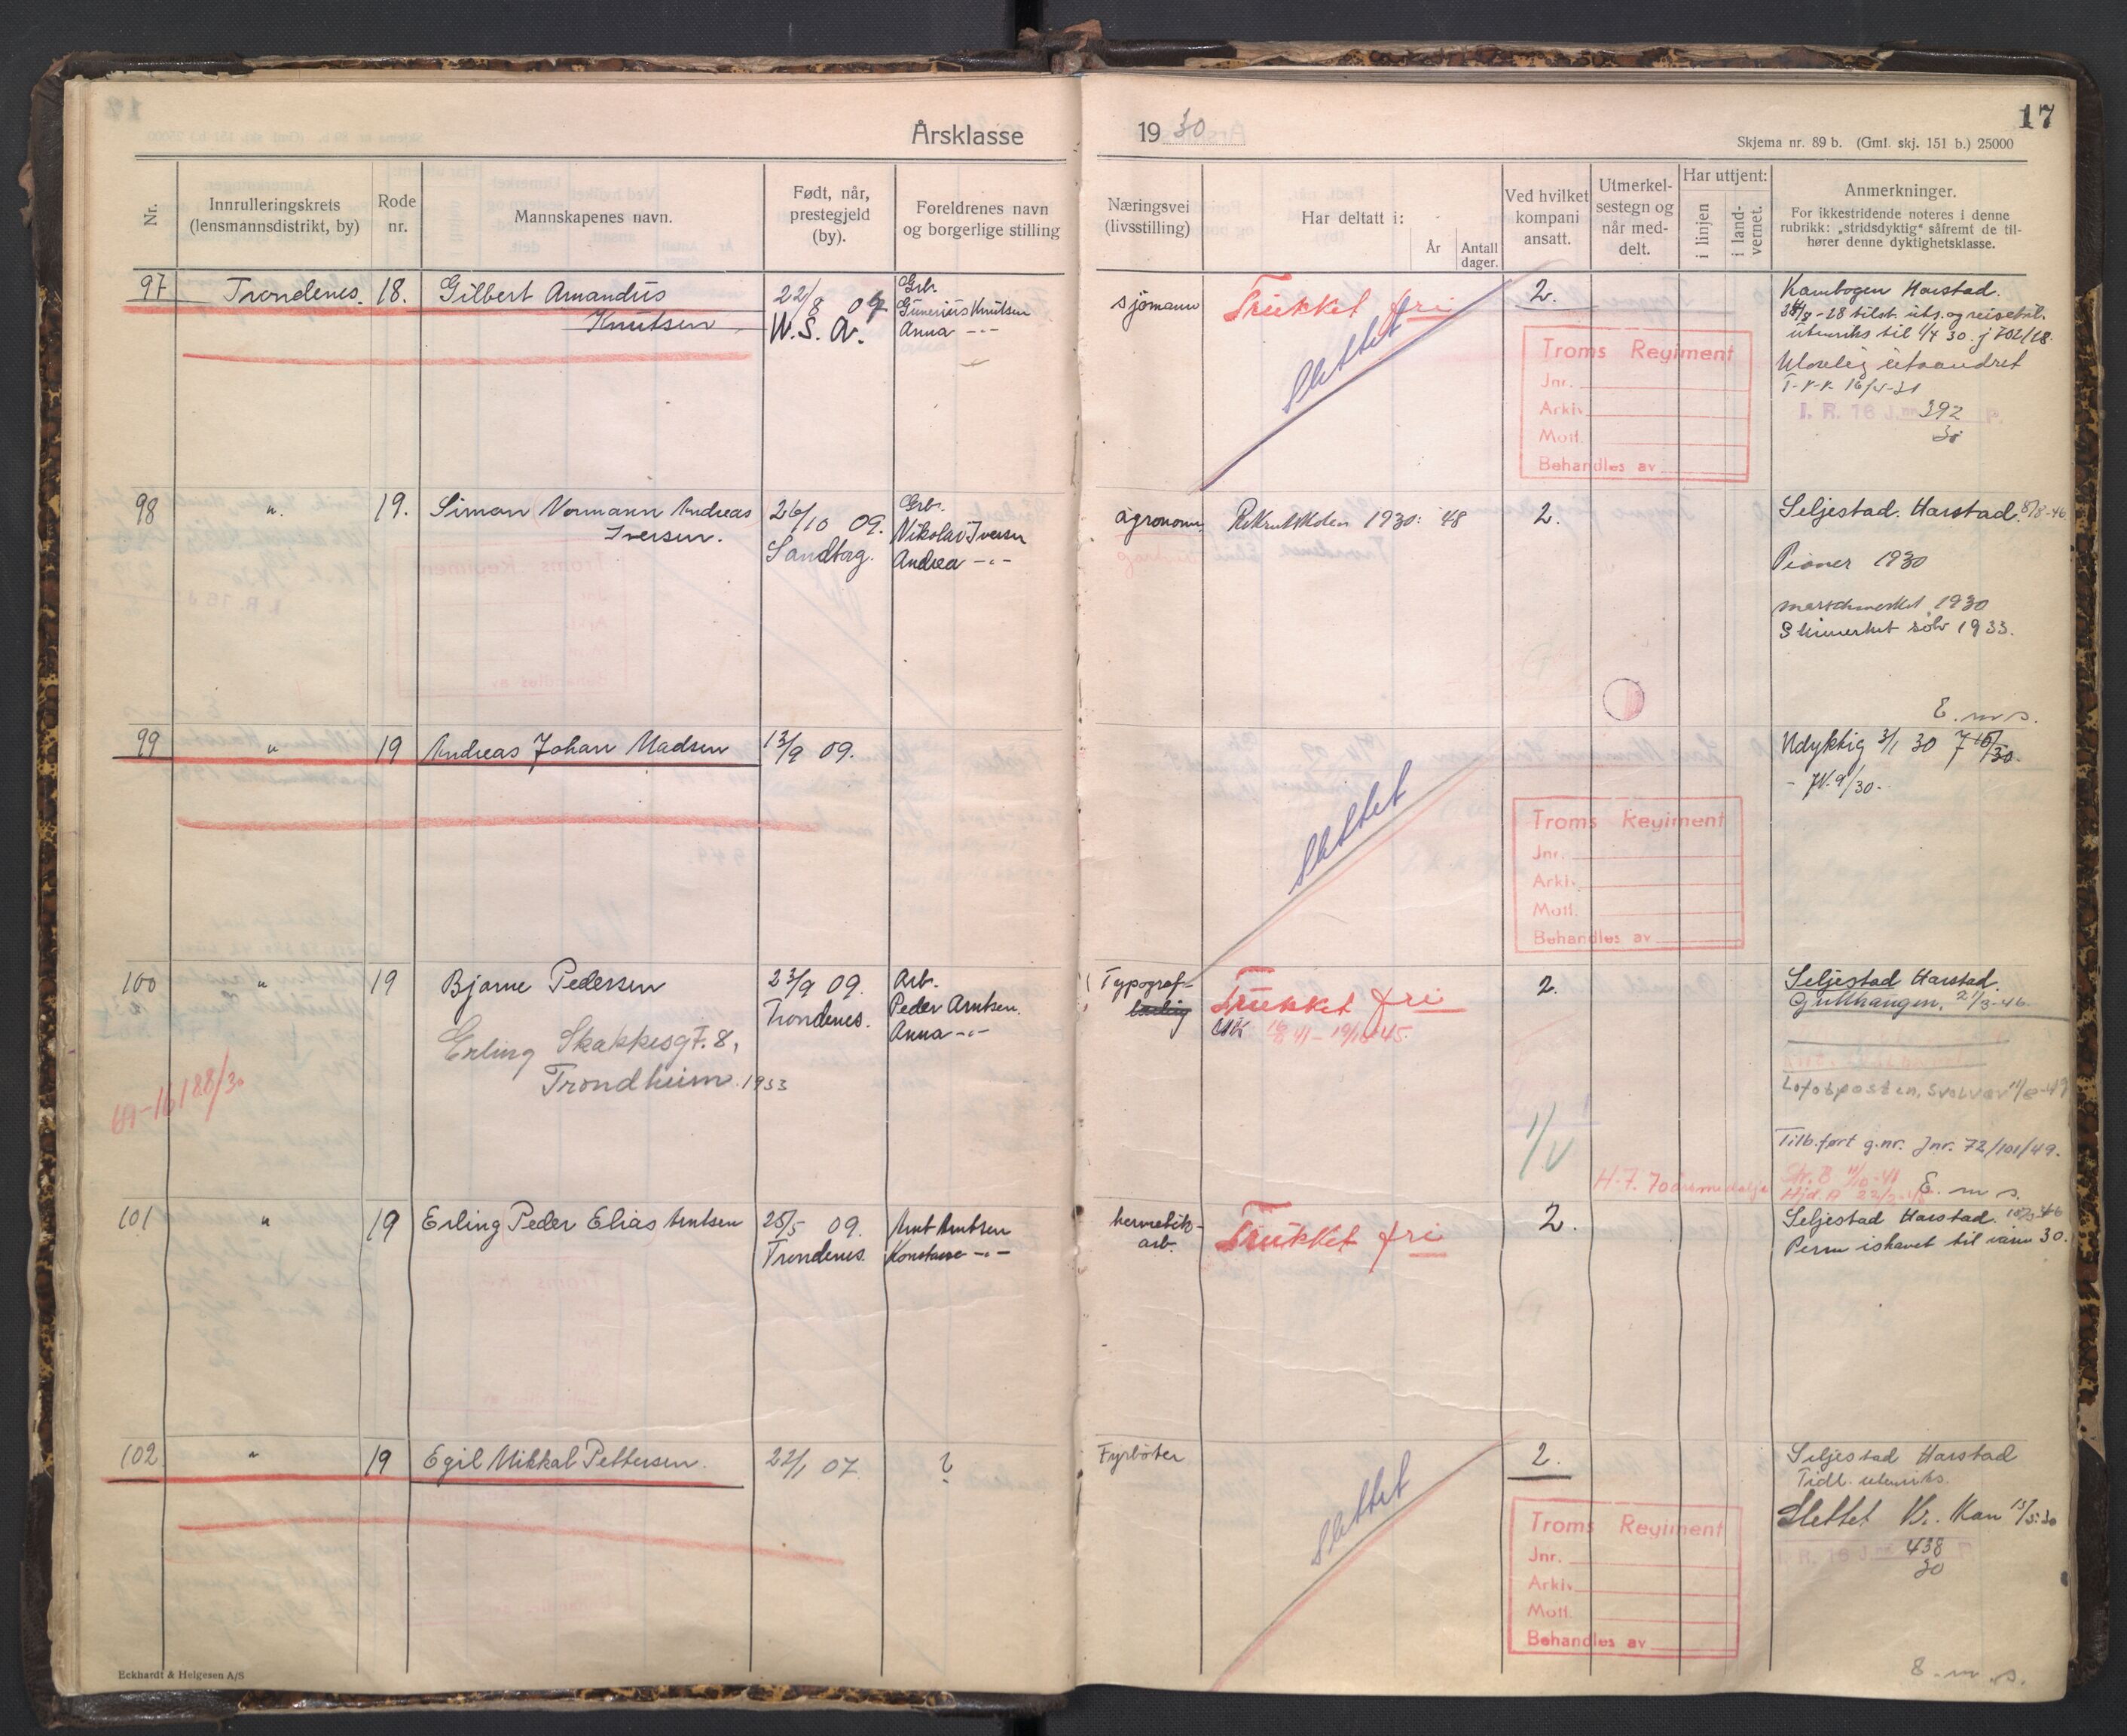 Årsklasse
1930
17
Skjema nr. 89 b. (Gml. skj. 151 b.) 25000
Nr.
Innrulleringskrets
(lensmannsdistrikt, by)
Rode
nr.
Mannskapenes navn.
Født, når,
prestegjeld
(by).
Foreldrenes navn
og borgerlige stilling
Næringsvei
(livsstilling)
Har deltatt i:
År
Antall
dager.
Ved hvilket
kompani
ansatt.
Utmerkel-
sestegn og
når med-
delt.
Har uttjent:
i linjen
i land-
vernet.
Anmerkninger.
For ikkestridende noteres i denne
rubrikk: „stridsdyktig" såfremt de til-
hører denne dyktighetsklasse.
97 Trondenes. 18. Gilbert Amandus
Knutsen
22/8 09
U. S. A.
Grb.
Gunerius Knutsen
Anna -"-
sjømann
Trukket fri
Slettet
2.
Troms Regiment
Jnr.
Arkiv
Mott.
Behandles av
Kambogen Harstad.
utenriks til 1/4 30. j 702/28.
Ulovlig utvandret
I. R. 16 J.nr. 392 P.
30
98 " 19. Simon Normann Andreas
Iversen.
26/10 09.
Sandtorg.
Grb.
Nikolai Iversen
Andrea -"-
agronom
Rekrutskolen 1930: 48
2.
Seljestad. Harstad. 8/8-46
Pioner 1930
marschmerket 1930
Skimerket sølv 1933.
E. m s.
99 " 19 Andreas Johan Madsen
13/9 09.
Slettet
Troms Regiment
Jnr.
Arkiv
Mott.
Behandles av
Udyktig 3/1 30
100 " 19 Bjarne Pedersen
Erling Skakkesgt. 8,
Trondheim. 1933
23/9 09.
Trondenes.
Arb.
Peder Arntsen.
Anna -"-
Typograf-
Trukket fri
2.
Seljestad Harstad.
Gullhaugen. 2/3-46
Lofotposten, Svolvær 11/8-49
Tilb.ført g.nr. Jnr. 72/101/49.
H.7. 70 årsmedalje
E. m s.
101 " 19 Erling Peder Elias Arntsen
25/5 09.
Trondenes.
Arnt Arntsen
Konstanse -"-
hermetik-
arb.
Trukket fri
2.
Seljestad Harstad.
Perm ishavet til våren 30.
102 " 19 Egil Mikkal Pettersen.
22/1 07.
?
Fyrbøter
Slettet
2.
Troms Regiment
Jnr.
Arkiv
Mott.
Behandles av
Seljestad Harstad
Tidl. utenriks.
Slettet Kr. Kom 13/3-30
I. R. 16 J.nr. 438 P
30
E. m. s.
Eckhardt & Helgesen A/S